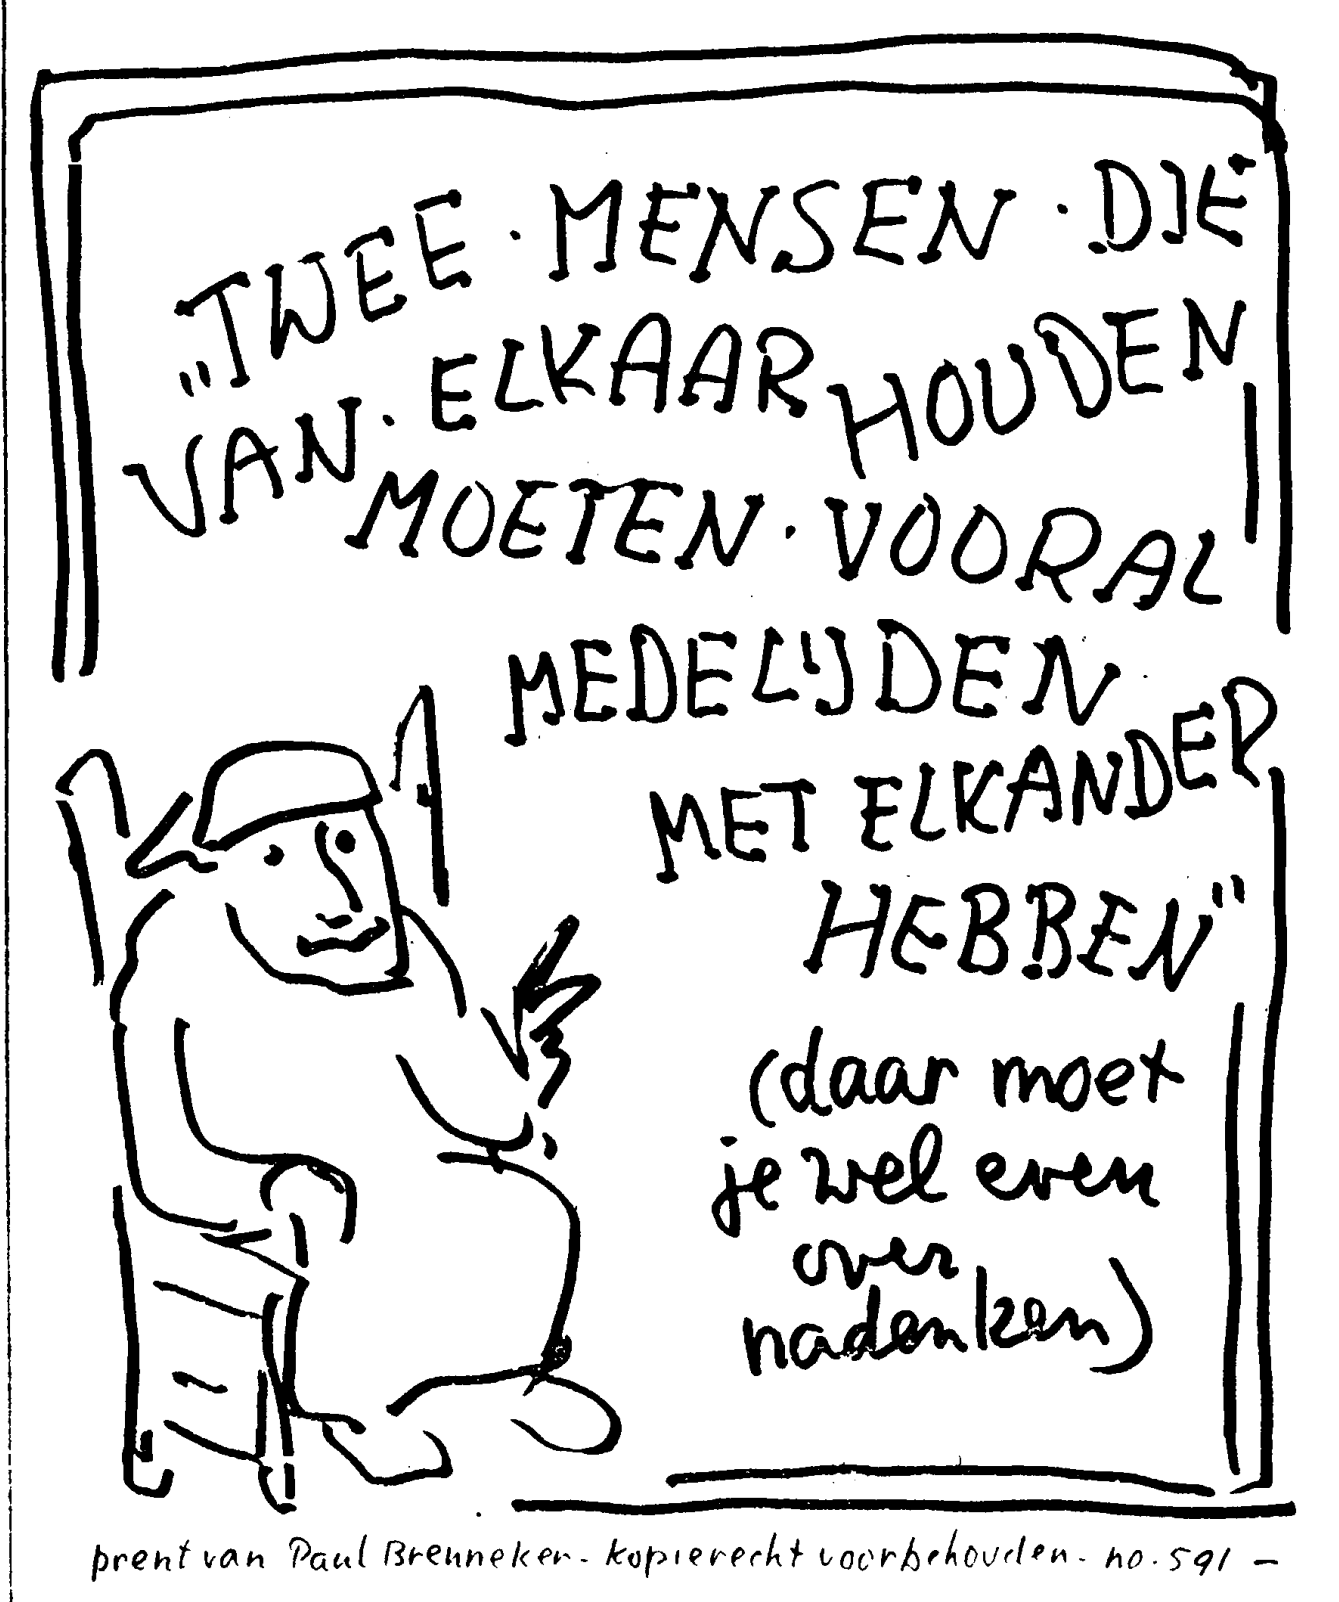 „TWEE · MENSEN · DIE
VAN · ELKAAR HOUDEN
MOETEN · VOORAL
MEDELIJDEN
MET ELKANDER
HEBBEN"
(daar moet
je wel even
over
nadenken)
prent van Paul Brenneker - kopierecht voorbehouden - no. 591 -